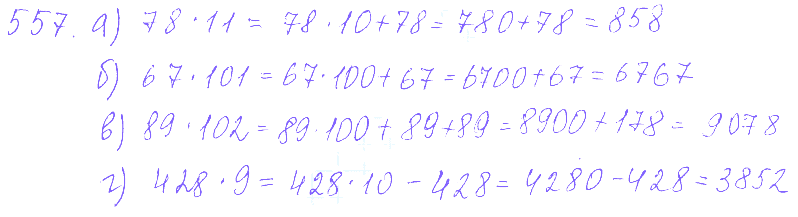 557. а) 78 · 11 = 78 · 10 + 78 = 780 + 78 = 858
б) 67 · 101 = 67 · 100 + 67 = 6700 + 67 = 6767
в) 89 · 102 = 89 · 100 + 89 + 89 = 8900 + 178 = 9078
г) 428 · 9 = 428 · 10 - 428 = 4280 - 428 = 3852